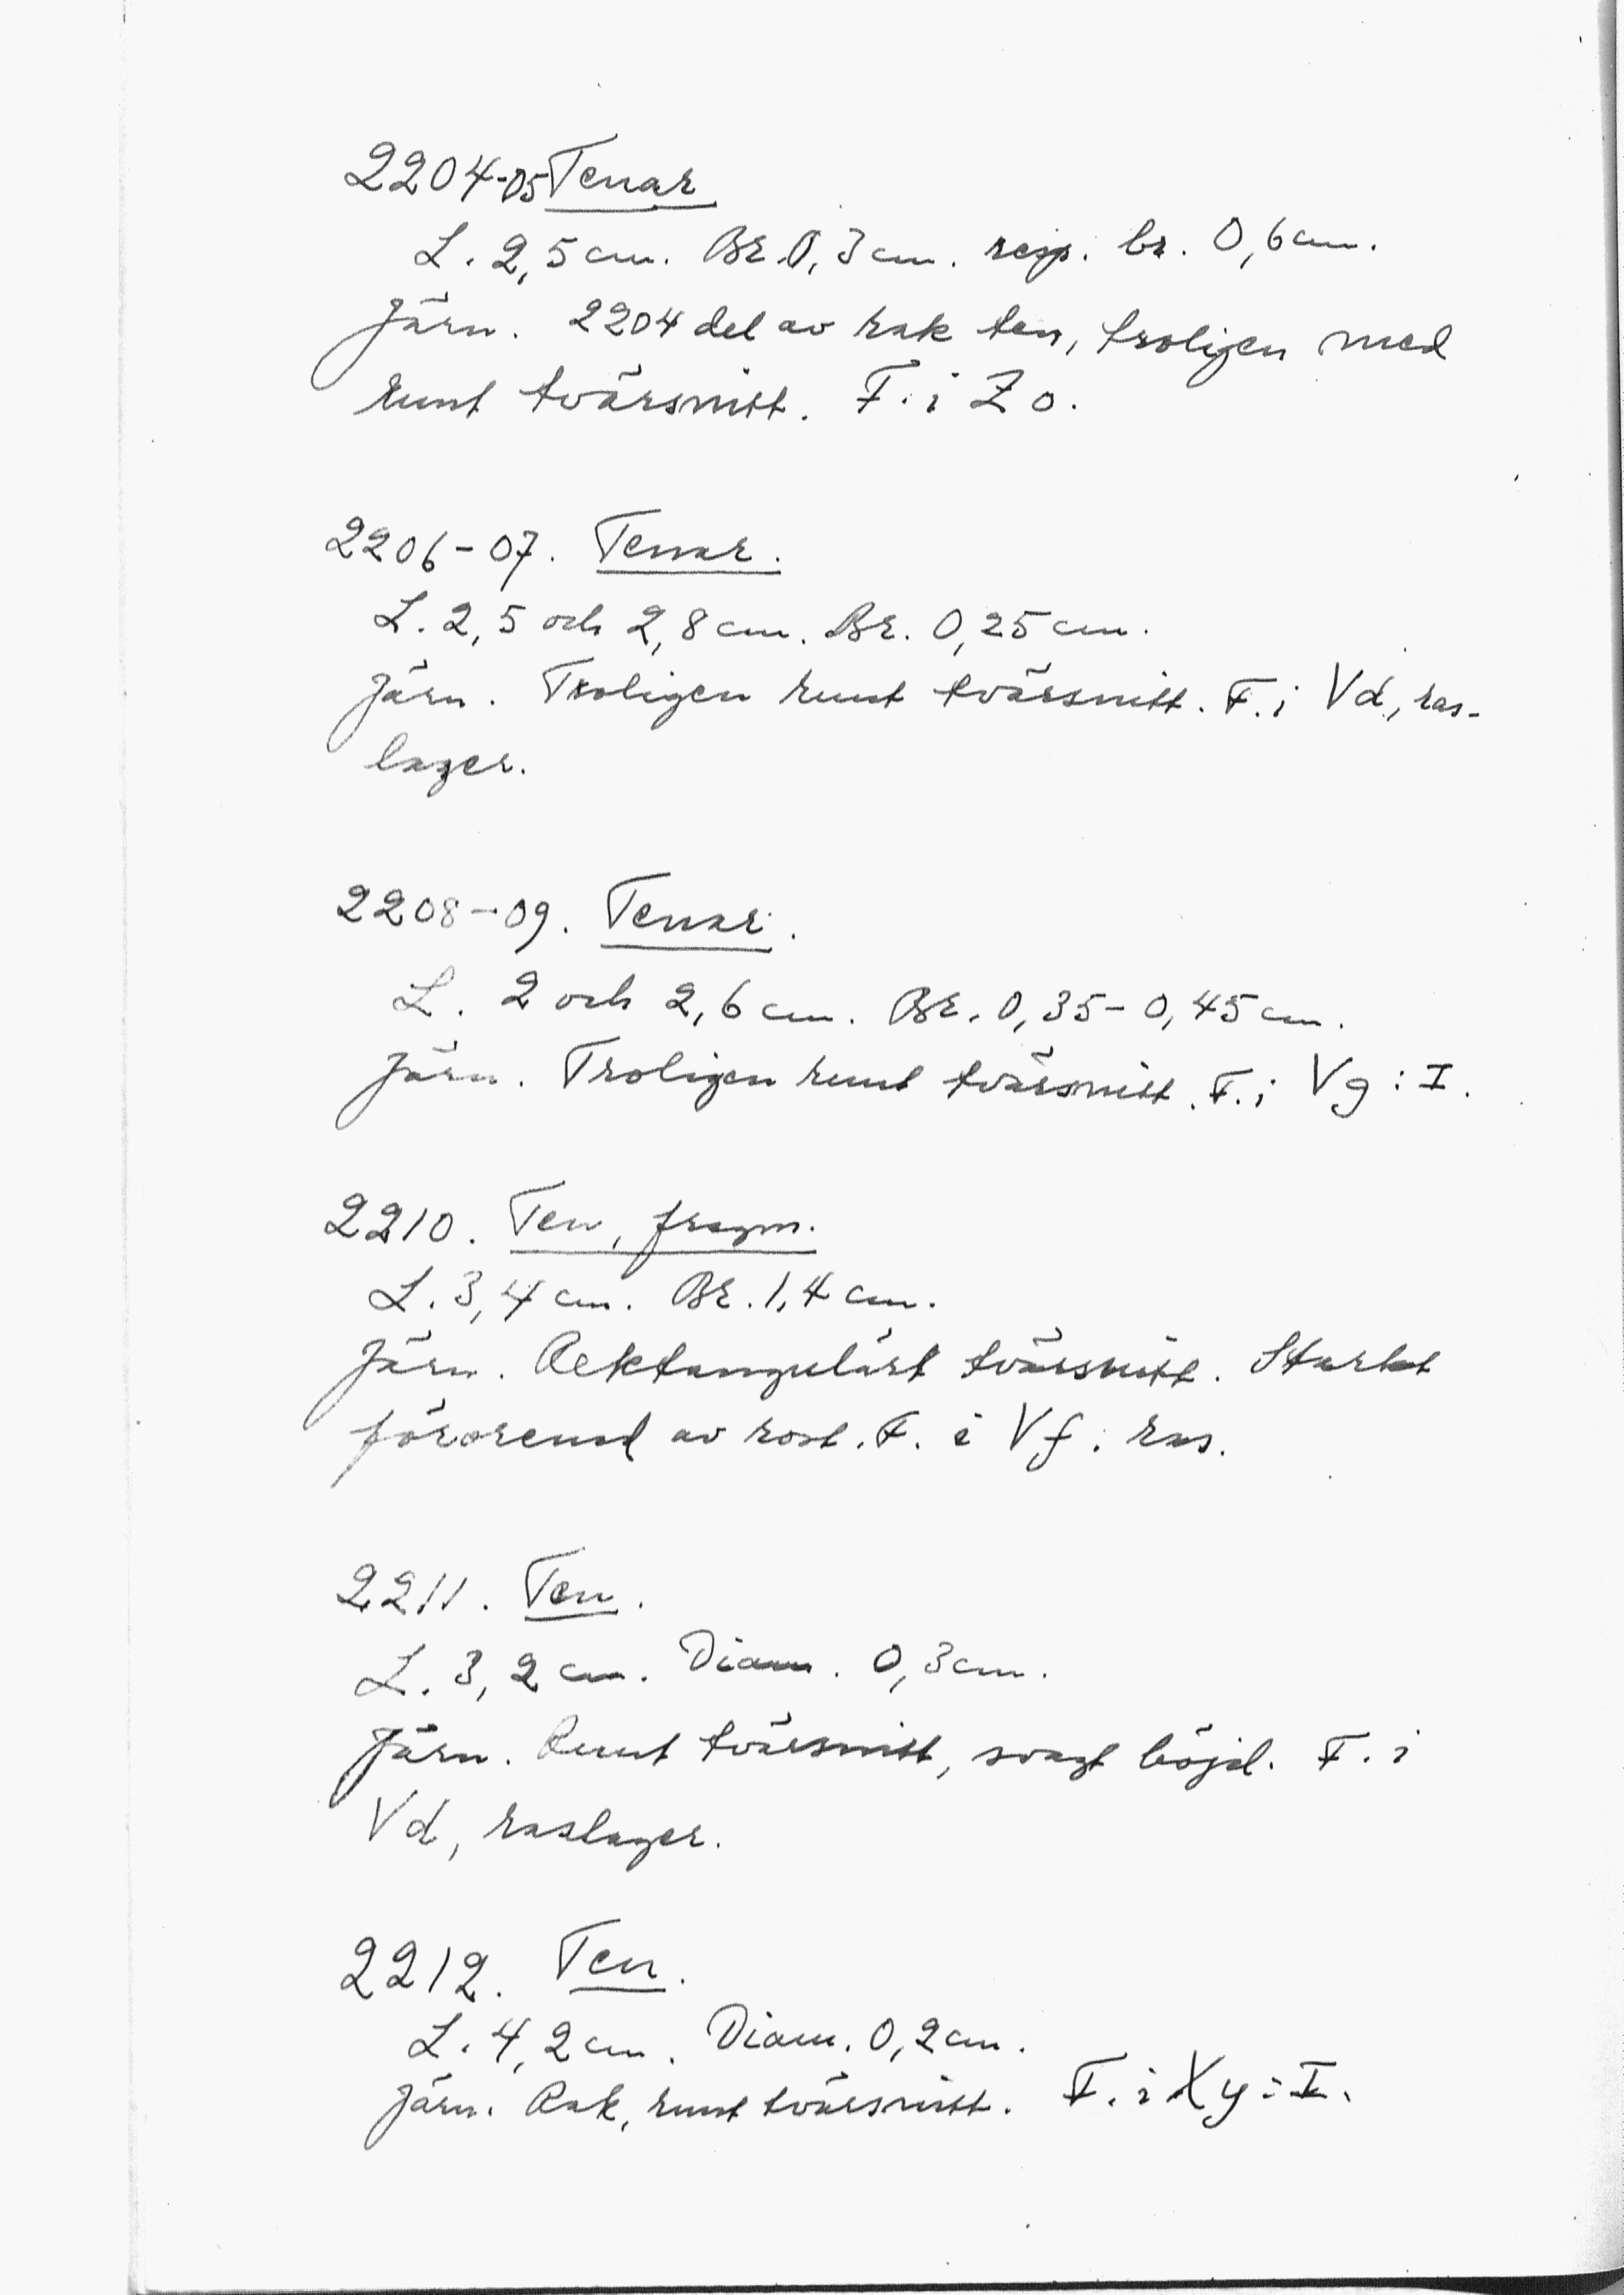 2204-05 Tenar
L. 2,5 cm. Br. 0,3 cm. resp. br. 0,6 cm.
Järn. 2204 del av rak ten, troligen med
runt tvärsnitt. F. i Zo.
2206-07. Tenar.
L. 2,5 och 2,8 cm. Br. 0,25 cm.
Järn. Troligen runt tvärsnitt. F. i Vd, ras-
lager.
2208-09. Tenar.
L. 2 och 2,6 cm. Br. 0,35-0,45 cm.
Järn. Troligen runt tvärsnitt. F. i Vg: I.
2210. Ten, fragm.
L. 3,4 cm. Br. 1,4 cm.
Järn. Rektangulärt tvärsnitt. Starkt
förorenad av rost. F. i Vf. ras.
2211. Ten.
L. 3,2 cm. Diam. 0,3 cm.
Järn. Runt tvärsnitt, svagt böjd. F. i
Vd, raslager.
2212. Ten.
L. 4,2 cm. Diam. 0,2 cm.
Järn. Rak, runt tvärsnitt. F. i Xy: I.